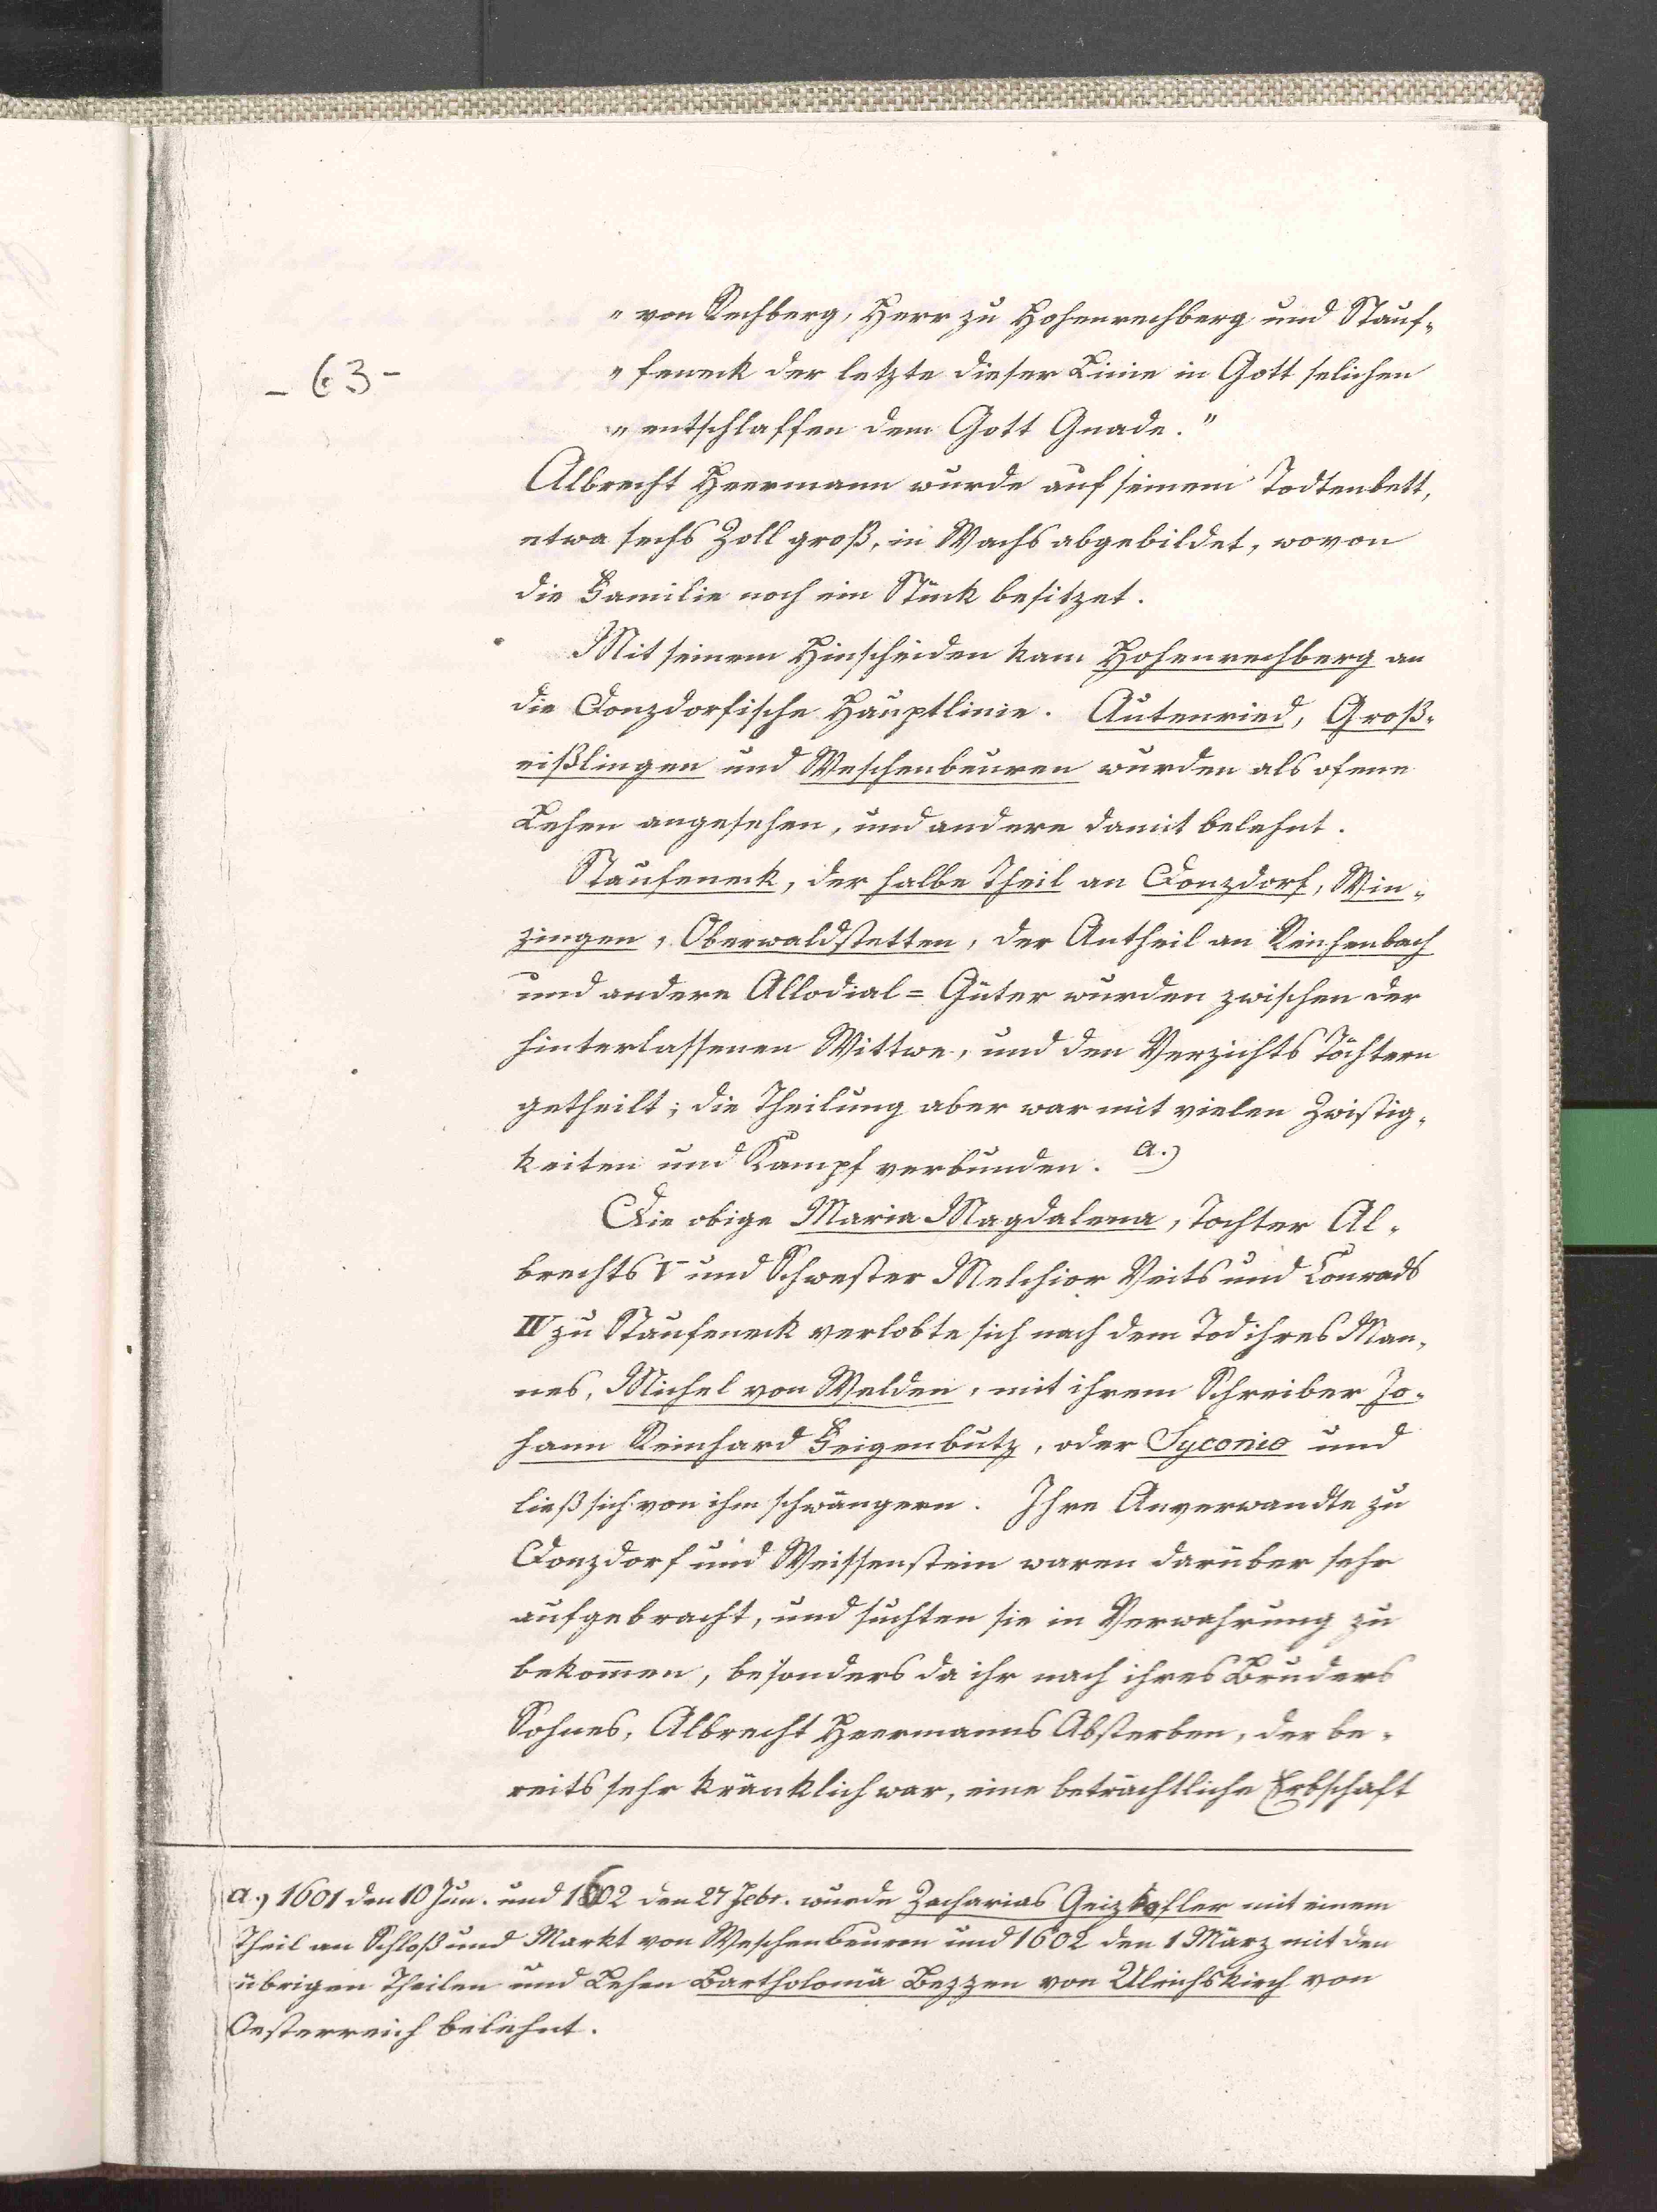 - 63 -
„ von Rechberg, Herr zu Hohenrechberg und Stauf-
„ feneck der letzte dieser Linie in Gott selichen
„ entschlaffen dem Gott Gnade."
Albrecht Heermann wurde auf seinem Todtenbett,
etwa sechs Zoll groß, in Wachs abgebildet, wovon
die Familie noch ein Stück besitzet.
Mit seinem Hinscheiden kam Hohenrechberg an
die Donzdorfische Hauptlinie. Autenried, Groß-
eißlingen und Weschenbeuren wurden als ofene
Lehen angesehen, und andere damit belehnt.
Staufeneck, der halbe Theil an Donzdorf, Win-
zingen, Oberwaldstetten, der Antheil an Reichenbach
und andere Allodial= Güter wurden zwischen der
hinterlassenen Wittwe, und den Verzichts Töchtern
getheilt; die Theilung aber war mit vielen Zwistig-
keiten und Kampf verbunden. a.)
Die obige Maria Magdalena, Tochter Al-
brechts V und Schwester Melchior Veits und Conrads
IV zu Staufeneck verlobte sich nach dem Tod ihres Man-
nes, Michel von Welden, mit ihrem Schreiber Jo-
hann Reinhard Feigenbutz, oder Syconio und
ließ sich von ihm schwängern. Ihre Anverwandte zu
Donzdorf und Weissenstein waren darüber sehr
aufgebracht, und suchten sie in Verwahrung zu
bekom̄en, besonders da ihr nach ihres Bruders
Sohnes, Albrecht Heermanns Absterben, der be-
reits sehr kränklich war, eine beträchtliche Erbschaft
a.) 1601 den 10 Jun. und 1602 den 27 Febr. wurde Zacharias Geizkofler mit einem
Theil an Schloß und Markt von Weschenbeuren und 1602 den 1 März mit den
übrigen Theilen und Lehen Bartholomä Bezzen von Ulrichskirch von
Oesterreich belehnt.